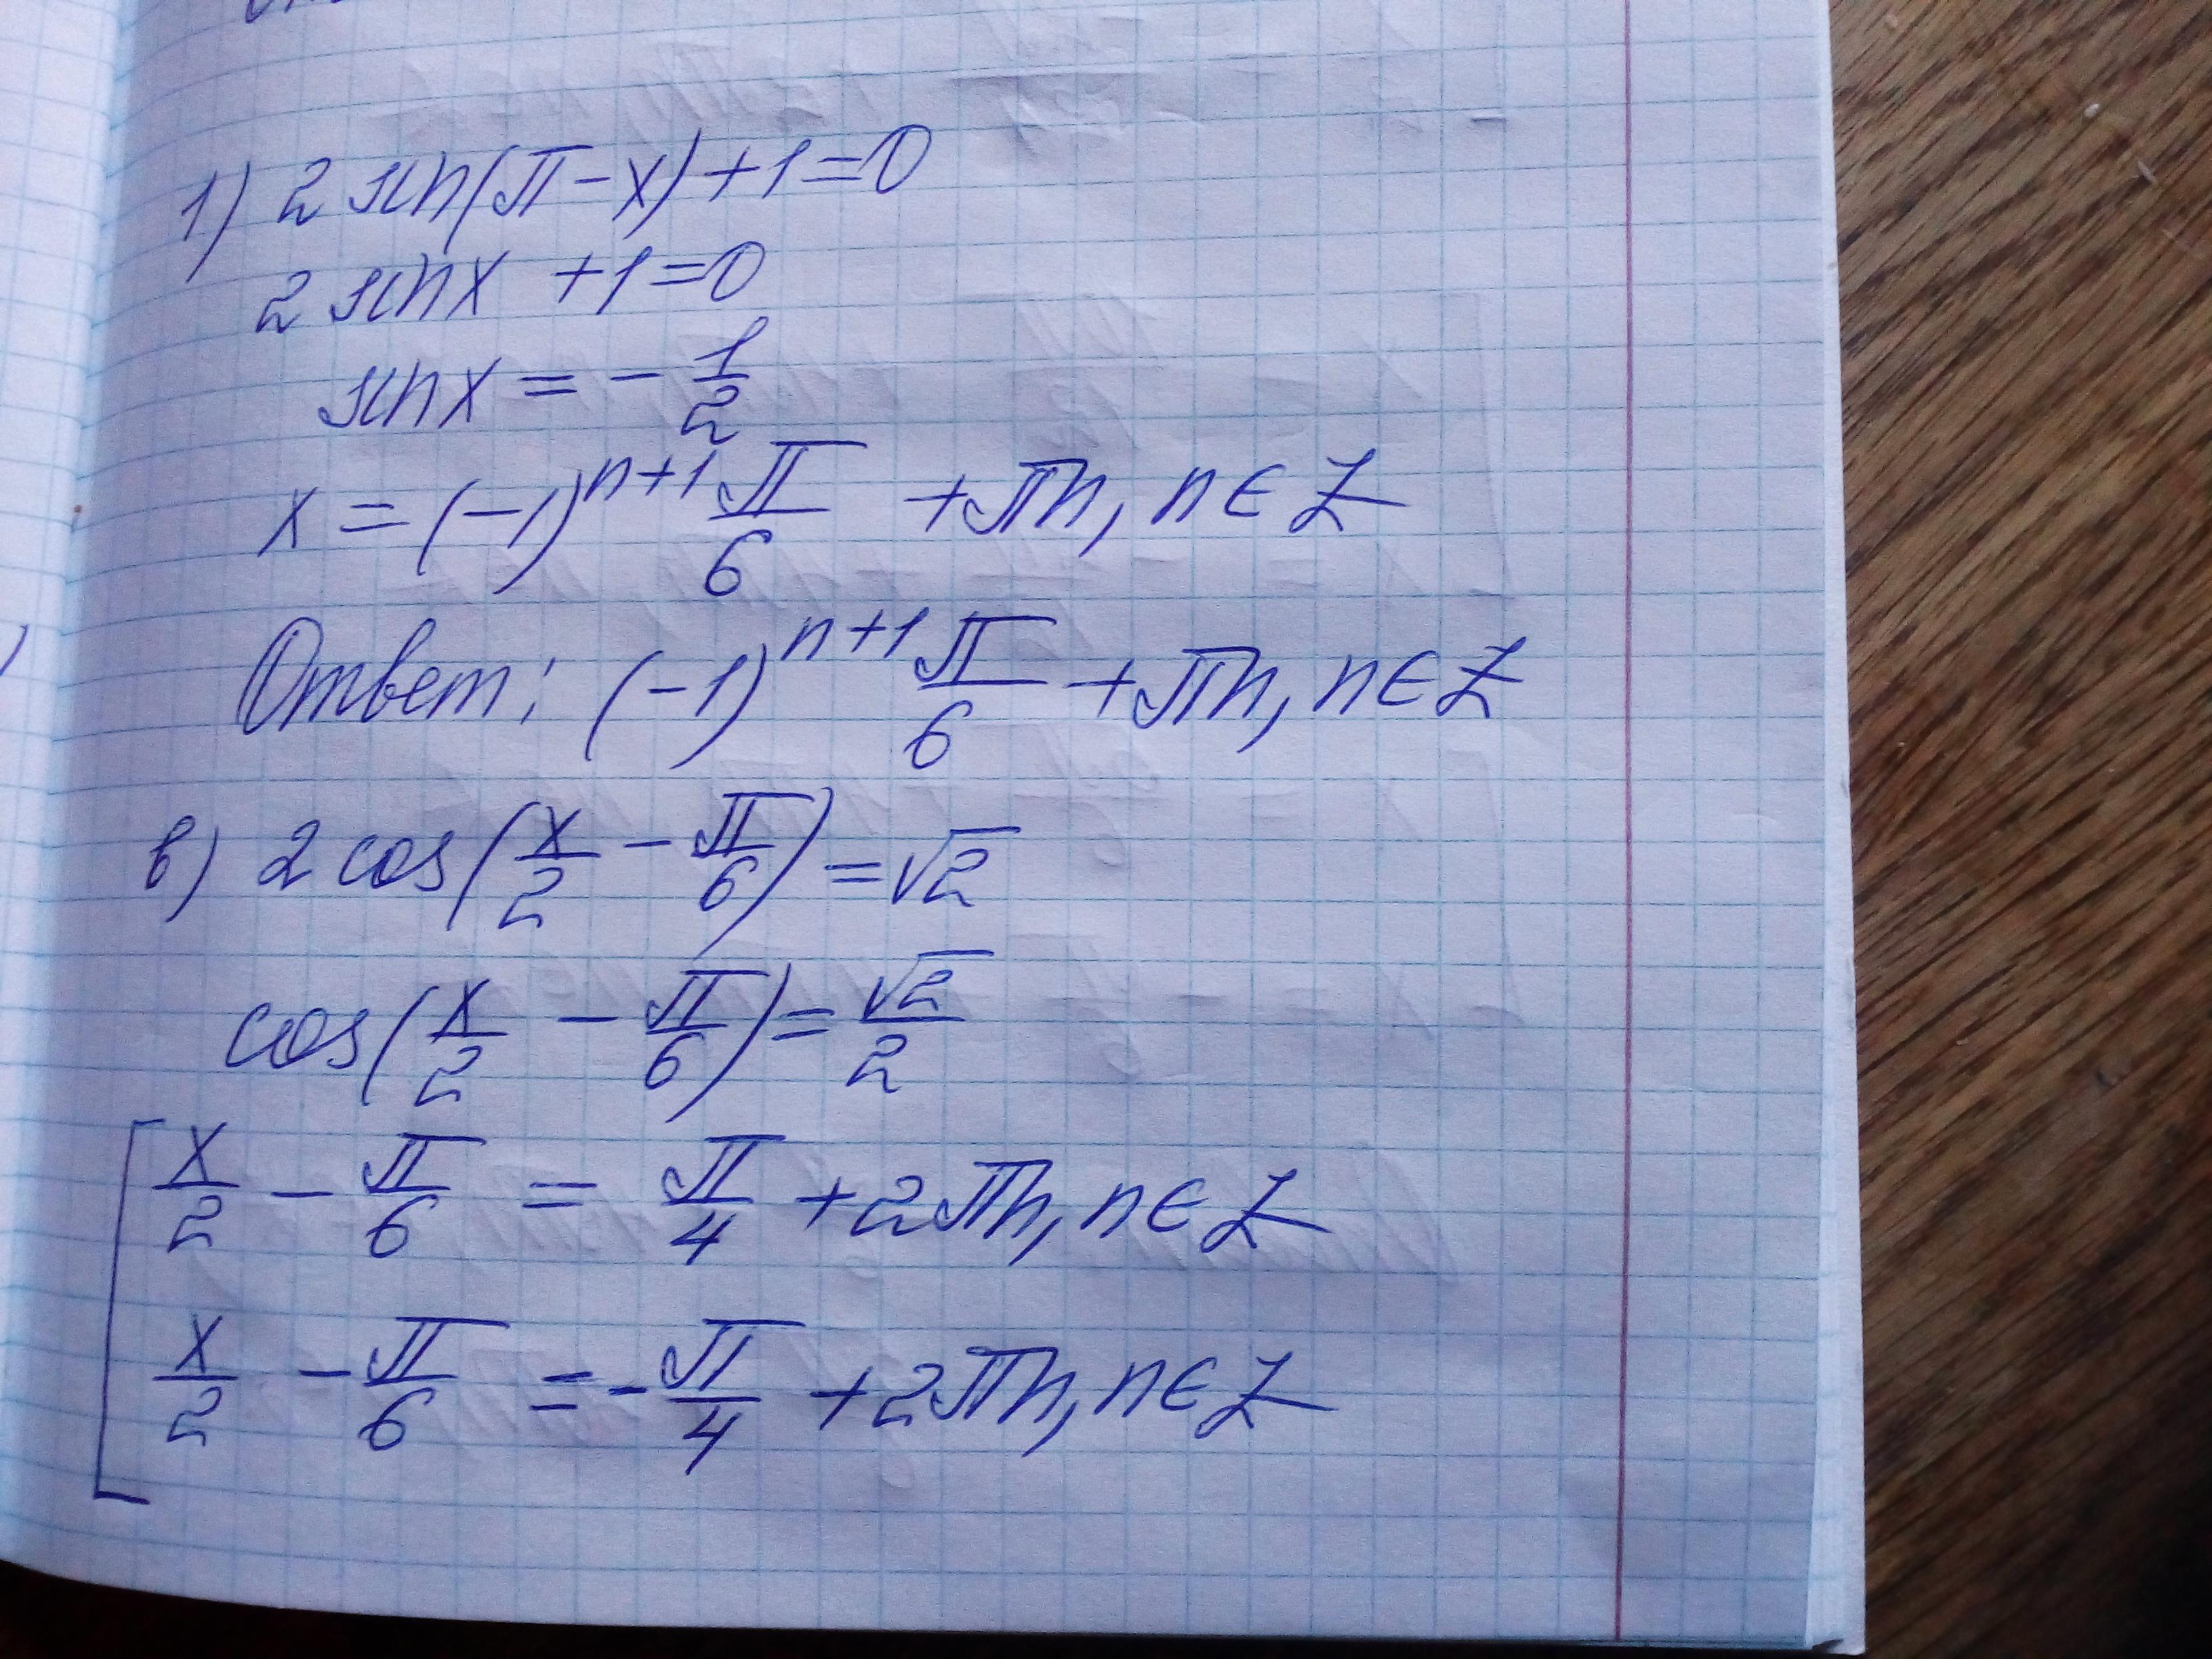 1) 2 sin(π - x) + 1 = 0
2 sin x + 1 = 0
sin x = - 1/2
x = (-1)^(n+1) π/6 + πn, n ∈ Z
Ответ: (-1)^(n+1) π/6 + πn, n ∈ Z
в) 2 cos(x/2 - π/6) = √2
cos(x/2 - π/6) = √2/2
[ x/2 - π/6 = π/4 + 2πn, n ∈ Z
x/2 - π/6 = - π/4 + 2πn, n ∈ Z